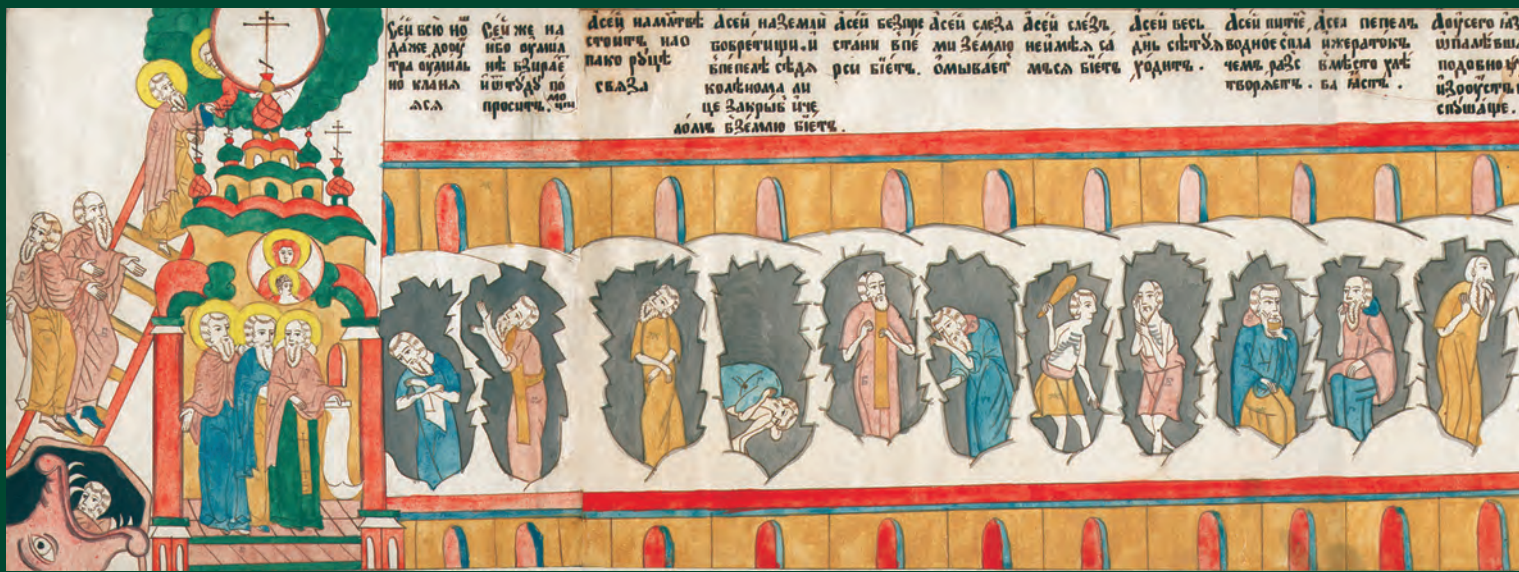 Сей всю но
даже доꙋ
тра оумиль
но кланѧ
ѧсѧ
Сей же на
нбо оумил
нѣ взирае
и ѿтꙋдꙋ по
проситъ.
Асей намлтвѣ
стоитъ нао
пако рꙋцѣ
свѧза
Асей наземли
бобретищи.и
впепелѣ сѣдѧ
колѣнома ли
це закрыв иче
ломъ вземлю бїетъ.
Асей безпре
стани впе
рси бїетъ.
Асей слеза
ми землю
омываетъ
Асей слезъ
неимеѧ са
мъсѧ бїетъ
Асей весь
днь сѣтꙋѧ
ходитъ.
Асей питїе
водное спла
чемъ разс
творѧетъ.
Асеѧ пепелъ
ижератокъ
вмѣсто хлѣ
ба ꙗстъ.
Аоусего ꙗз
ѿпалѣвша
подобно
изооустъ
спꙋщаше.